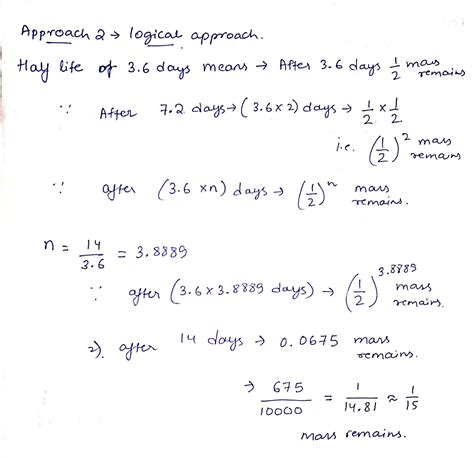 Approach 2 → logical approach.
Half life of 3.6 days means → After 3.6 days 1/2 mass remains
∵ After 7.2 days → (3.6 × 2) days → 1/2 × 1/2
i.e. (1/2)^2 mass remains
∵ after (3.6 × n) days → (1/2)^n mass remains.
n = 14/3.6 = 3.8889
∵ after (3.6 × 3.8889 days) → (1/2)^3.8889 mass remains.
2). after 14 days → 0.0675 mass remains.
→ 675/10000 = 1/14.81 ≈ 1/15
mass remains.